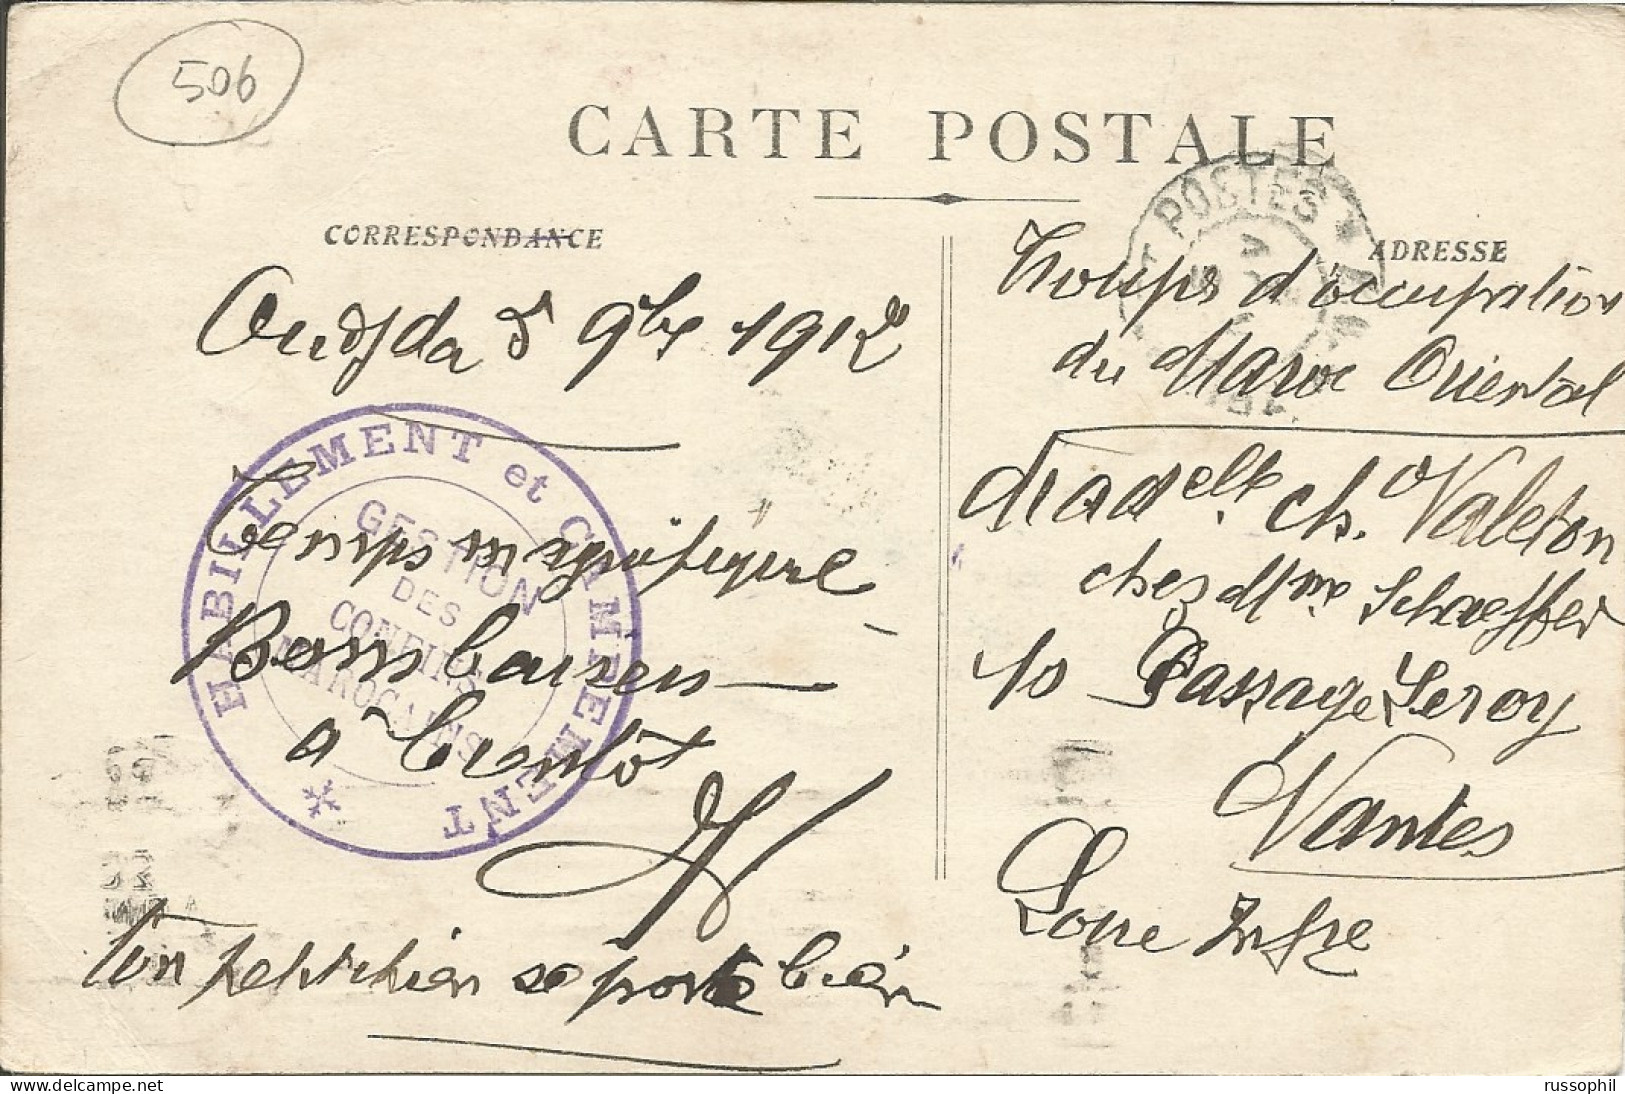 506
CARTE POSTALE
CORRESPONDANCE
Oudjda 5 9bre 1912
Temps magnifique
Bons baisers
a bientôt
Ton petit chien se porte bien
HABILLEMENT et CAMPEMENT
GESTION
DES
CONFINS
MAROCAINS
POSTES
ADRESSE
Troupes d'occupation
du Maroc Oriental
Madelle Ch. Valeton
chez Mme Schaeffer
10 Passage Leroy
Nantes
Loire Infre
russophil